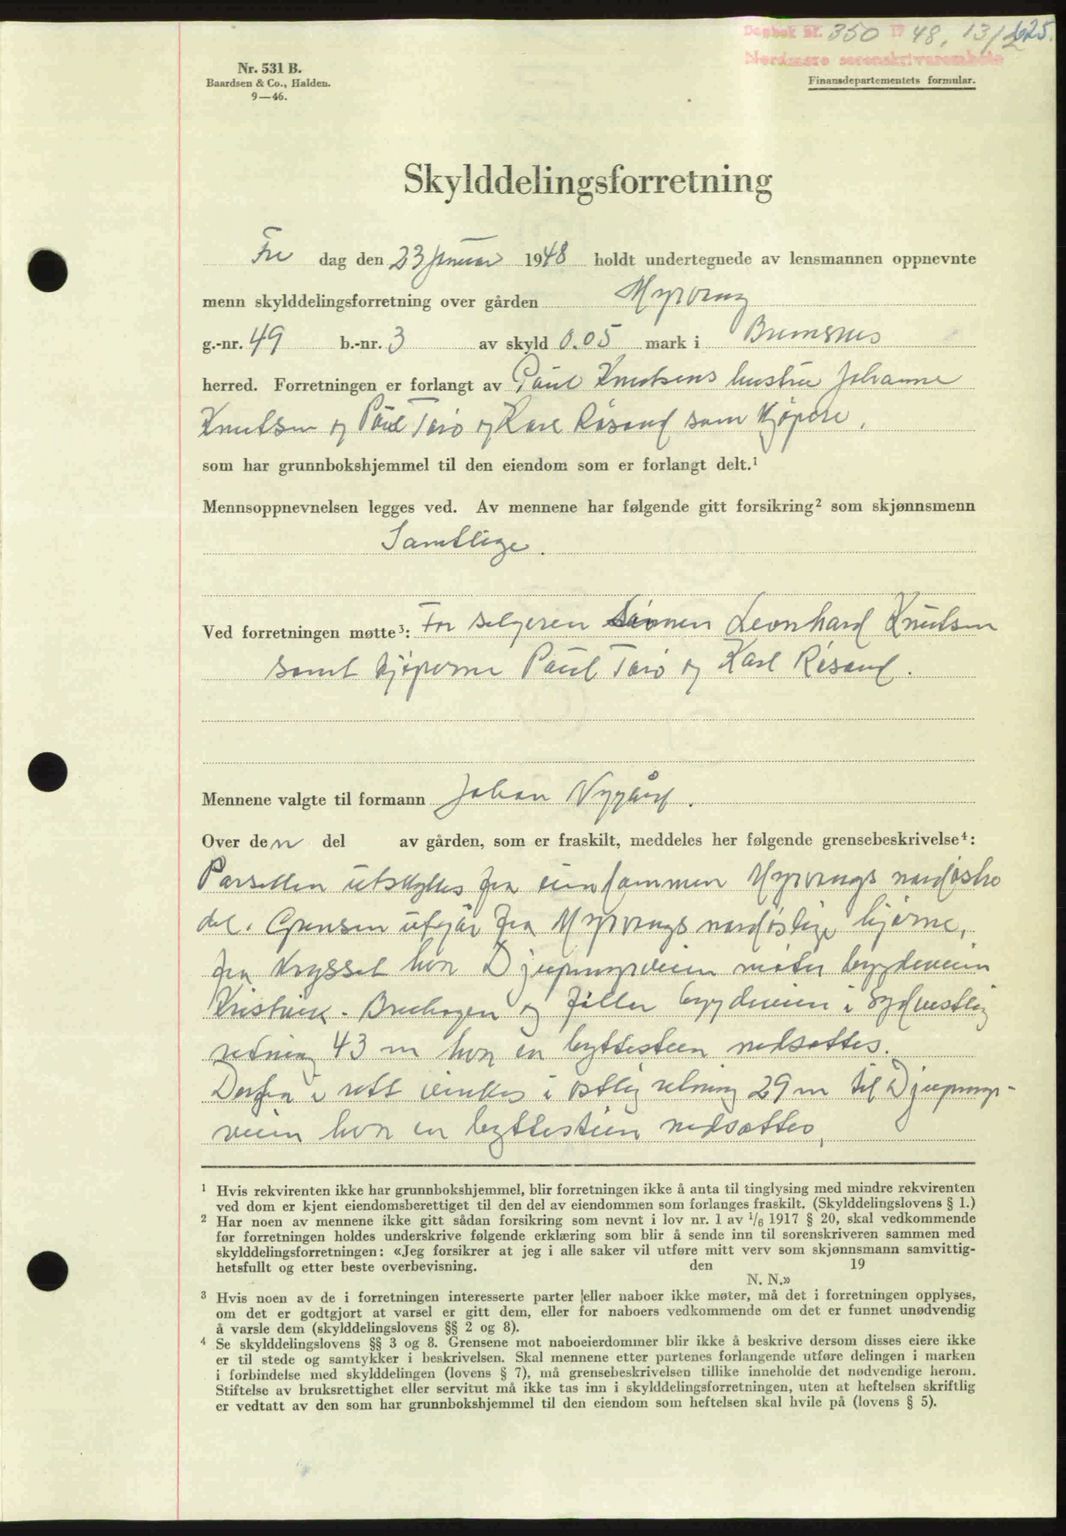 Dagbok nr. 350 1948, 13/2 625.
Nordmøre sorenskriverembete
Nr. 531 B.
Baardsen & Co., Halden.
9—46.
Finansdepartementets formular.
Skylddelingsforretning
Fre dag den 23 januar 1948 holdt undertegnede av lensmannen oppnevnte
menn skylddelingsforretning over gården Myrvang
g.-nr. 49 b.-nr. 3 av skyld 0.05 mark i Bremsnes
herred. Forretningen er forlangt av Paul Knutsens hustru Johanne
Knutsen og Paul Tarø og Karl Røsand som kjøpere.
som har grunnbokshjemmel til den eiendom som er forlangt delt.¹
Mennsoppnevnelsen legges ved. Av mennene har følgende gitt forsikring² som skjønnsmenn
Samtlige.
Ved forretningen møtte³: For selgeren sønnen Leonhard Knutsen
samt kjøperne Paul Tarø og Karl Røsand.
Mennene valgte til formann Johan Nygård.
Over den del av gården, som er fraskilt, meddeles her følgende grensebeskrivelse⁴:
Parsellen utskylles fra eiendommen Myrvangs nordøstre
del. Grensen utgår fra Myrvangs nordøstlige hjørne,
fra krysset hvor Djupmyrveien møter bygdeveien
Kristvik - Brekhagen og følger bygdeveien i sydvestlig
retning 43 m hvor en byttesteen nedsettes.
Derfra i rett vinkel i østlig retning 29 m til Djupmyr-
veien hvor en byttesteen nedsettes,
¹ Hvis rekvirenten ikke har grunnbokshjemmel, blir forretningen ikke å anta til tinglysing med mindre rekvirenten
ved dom er kjent eiendomsberettiget til den del av eiendommen som forlanges fraskilt. (Skylddelingslovens § 1.)
² Har noen av mennene ikke gitt sådan forsikring som nevnt i lov nr. 1 av ¹/₆ 1917 § 20, skal vedkommende
før forretningen holdes underskrive følgende erklæring som blir å sende inn til sorenskriveren sammen med
skylddelingsforretningen: «Jeg forsikrer at jeg i alle saker vil utføre mitt verv som skjønnsmann samvittig-
hetsfullt og etter beste overbevisning. den 19
N. N.»
³ Hvis noen av de i forretningen interesserte parter eller naboer ikke møter, må det i forretningen opplyses,
om det er godtgjort at varsel er gitt dem, eller for naboers vedkommende om det er funnet unødvendig
å varsle dem (skylddelingslovens §§ 2 og 8).
⁴ Se skylddelingslovens §§ 3 og 8. Grensene mot naboeierdommer blir ikke å beskrive dersom disses eiere ikke
er til stede og samtykker i beskrivelsen. Skal mennene etter partenes forlangende utføre delingen i marken
i forbindelse med skylddelingen (lovens § 7), må grensebeskrivelsen tillike inneholde det nødvendige herom.
Stiftelse av bruksrettighet eller servitut må ikke tas inn i skylddelingsforretningen, uten at heftelsen skriftlig
er vedtatt av den som har grunnbokshjemmel til den eiendom som heftelsen skal hvile på (lovens § 5).